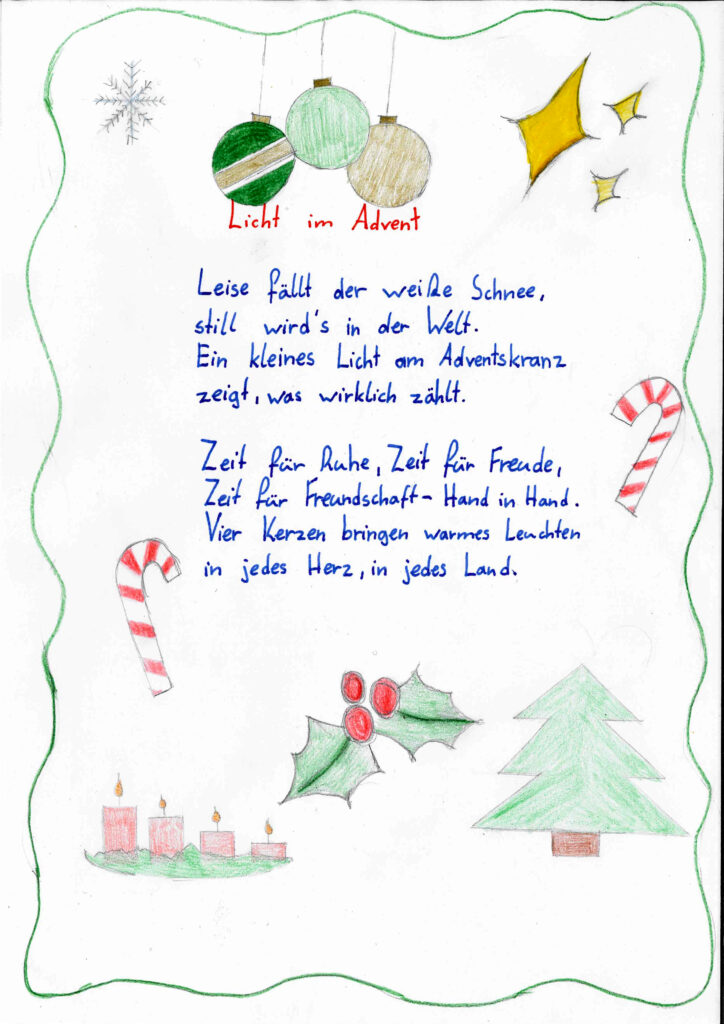 Licht im Advent
Leise fällt der weiße Schnee,
still wird's in der Welt.
Ein kleines Licht am Adventskranz
zeigt, was wirklich zählt.
Zeit für Ruhe, Zeit für Freude,
Zeit für Freundschaft - Hand in Hand.
Vier Kerzen bringen warmes Leuchten
in jedes Herz, in jedes Land.